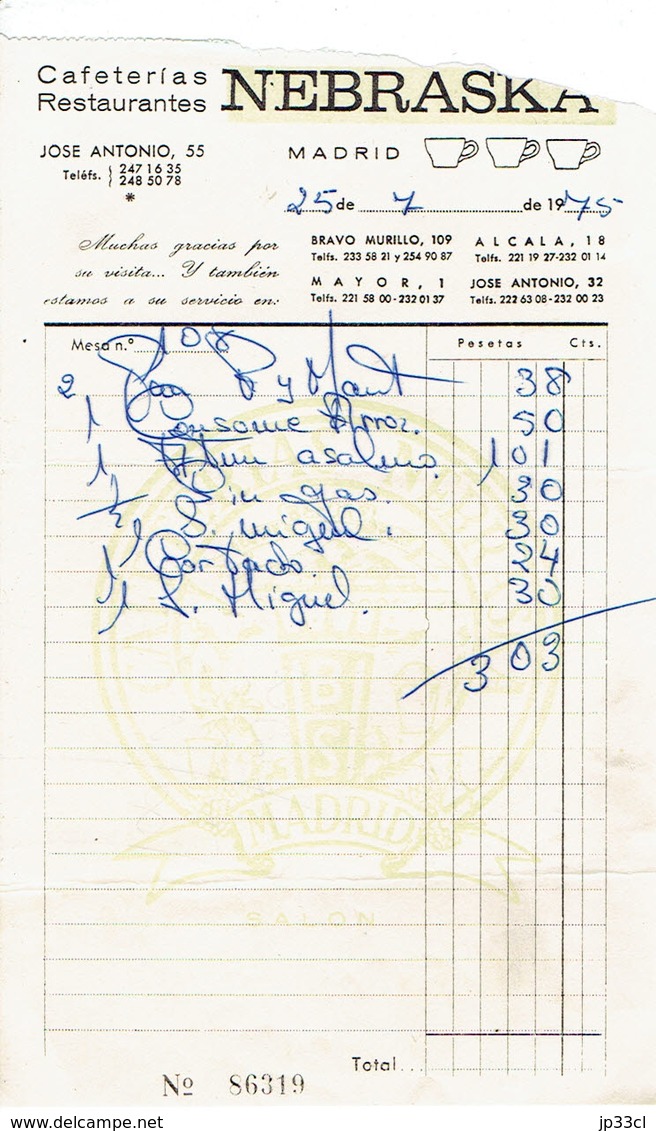 Cafeterías
Restaurantes NEBRASKA
JOSE ANTONIO, 55
Teléfs. { 247 16 35
248 50 78
*
MADRID
25 de 7 de 1975
Muchas gracias por
su visita... Y también
estamos a su servicio en:
BRAVO MURILLO, 109
Telfs. 233 58 21 y 254 90 87
ALCALA, 18
Telfs. 221 19 27-232 01 14
MAYOR, 1
Telfs. 221 58 00-232 01 37
JOSE ANTONIO, 32
Telfs. 222 63 08-232 00 23
Mesa n.º 108 Pesetas Cts.
2 Pan P y Mant 38
1 Consome Arroz. 50
1 asalmo. 101
1/2 Sin gas. 30
1 S. Miguel. 30
1 Cortado 24
1 S. Miguel. 30
303
MADRID
Total...
Nº 86319
jp33cl